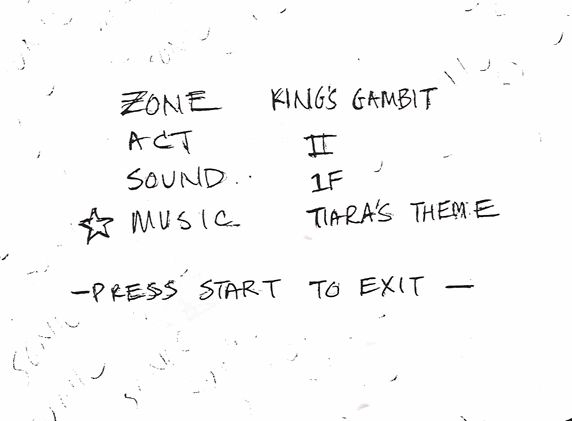 ZONE KING'S GAMBIT
ACT II
SOUND 1F
☆ MUSIC TIARA'S THEME
-PRESS START TO EXIT -
SONIC